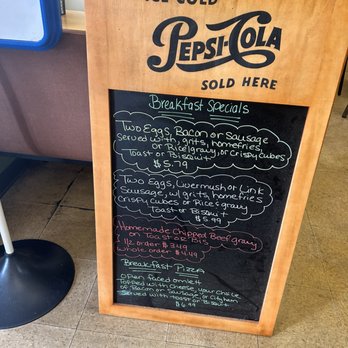 ICE COLD
PEPSI-COLA
SOLD HERE
Breakfast Specials
Two Eggs, Bacon or Sausage
Served with, grits, homefries
or Rice/gravy, or Crispy Cubes
Toast or Biscuit
$5.79
Two Eggs, Livermush or Link
Sausage, w/ grits, homefries
Crispy Cubes or Rice & gravy
Toast or Biscuit
$5.99
Homemade Chipped Beef gravy
on Toast or Bis
1 1/2 order $3.49
Whole order $4.49
Breakfast Pizza
open faced omlett
Topped with Cheese, your Choice
of Bacon or Sausage or City ham
Served with toast or Biscuit
$6.99